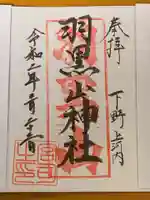 奉拝
下野上河内
羽黒山神社
令和二年二月二十三日